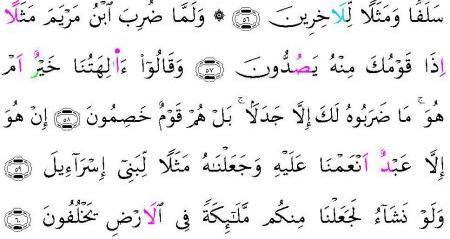 سَلَفٗا وَمَثَلٗا لِّلَاخِرِينَ ٥٦ ۞ وَلَمَّا ضُرِبَ ٱبْنُ مَرْيَمَ مَثَلًا
اِذَا قَوْمُكَ مِنْهُ يَصُدُّونَ ٥٧ وَقَالُوٓاْ ءَاٰ۬لِهَتُنَا خَيْرٌ اَمْ
هُوَۚ مَا ضَرَبُوهُ لَكَ إِلَّا جَدَلَۢاۚ بَلْ هُمْ قَوْمٌ خَصِمُونَ ٥٨ إِنْ هُوَ
إِلَّا عَبْدٌ اَنْعَمْنَا عَلَيْهِ وَجَعَلْنَٰهُ مَثَلٗا لِّبَنِىٓ إِسْرَآءِيلَ ٥٩
وَلَوْ نَشَآءُ لَجَعَلْنَا مِنكُم مَّلَٰٓئِكَةٗ فِى ٱلَارْضِ يَخْلُفُونَ ٦٠